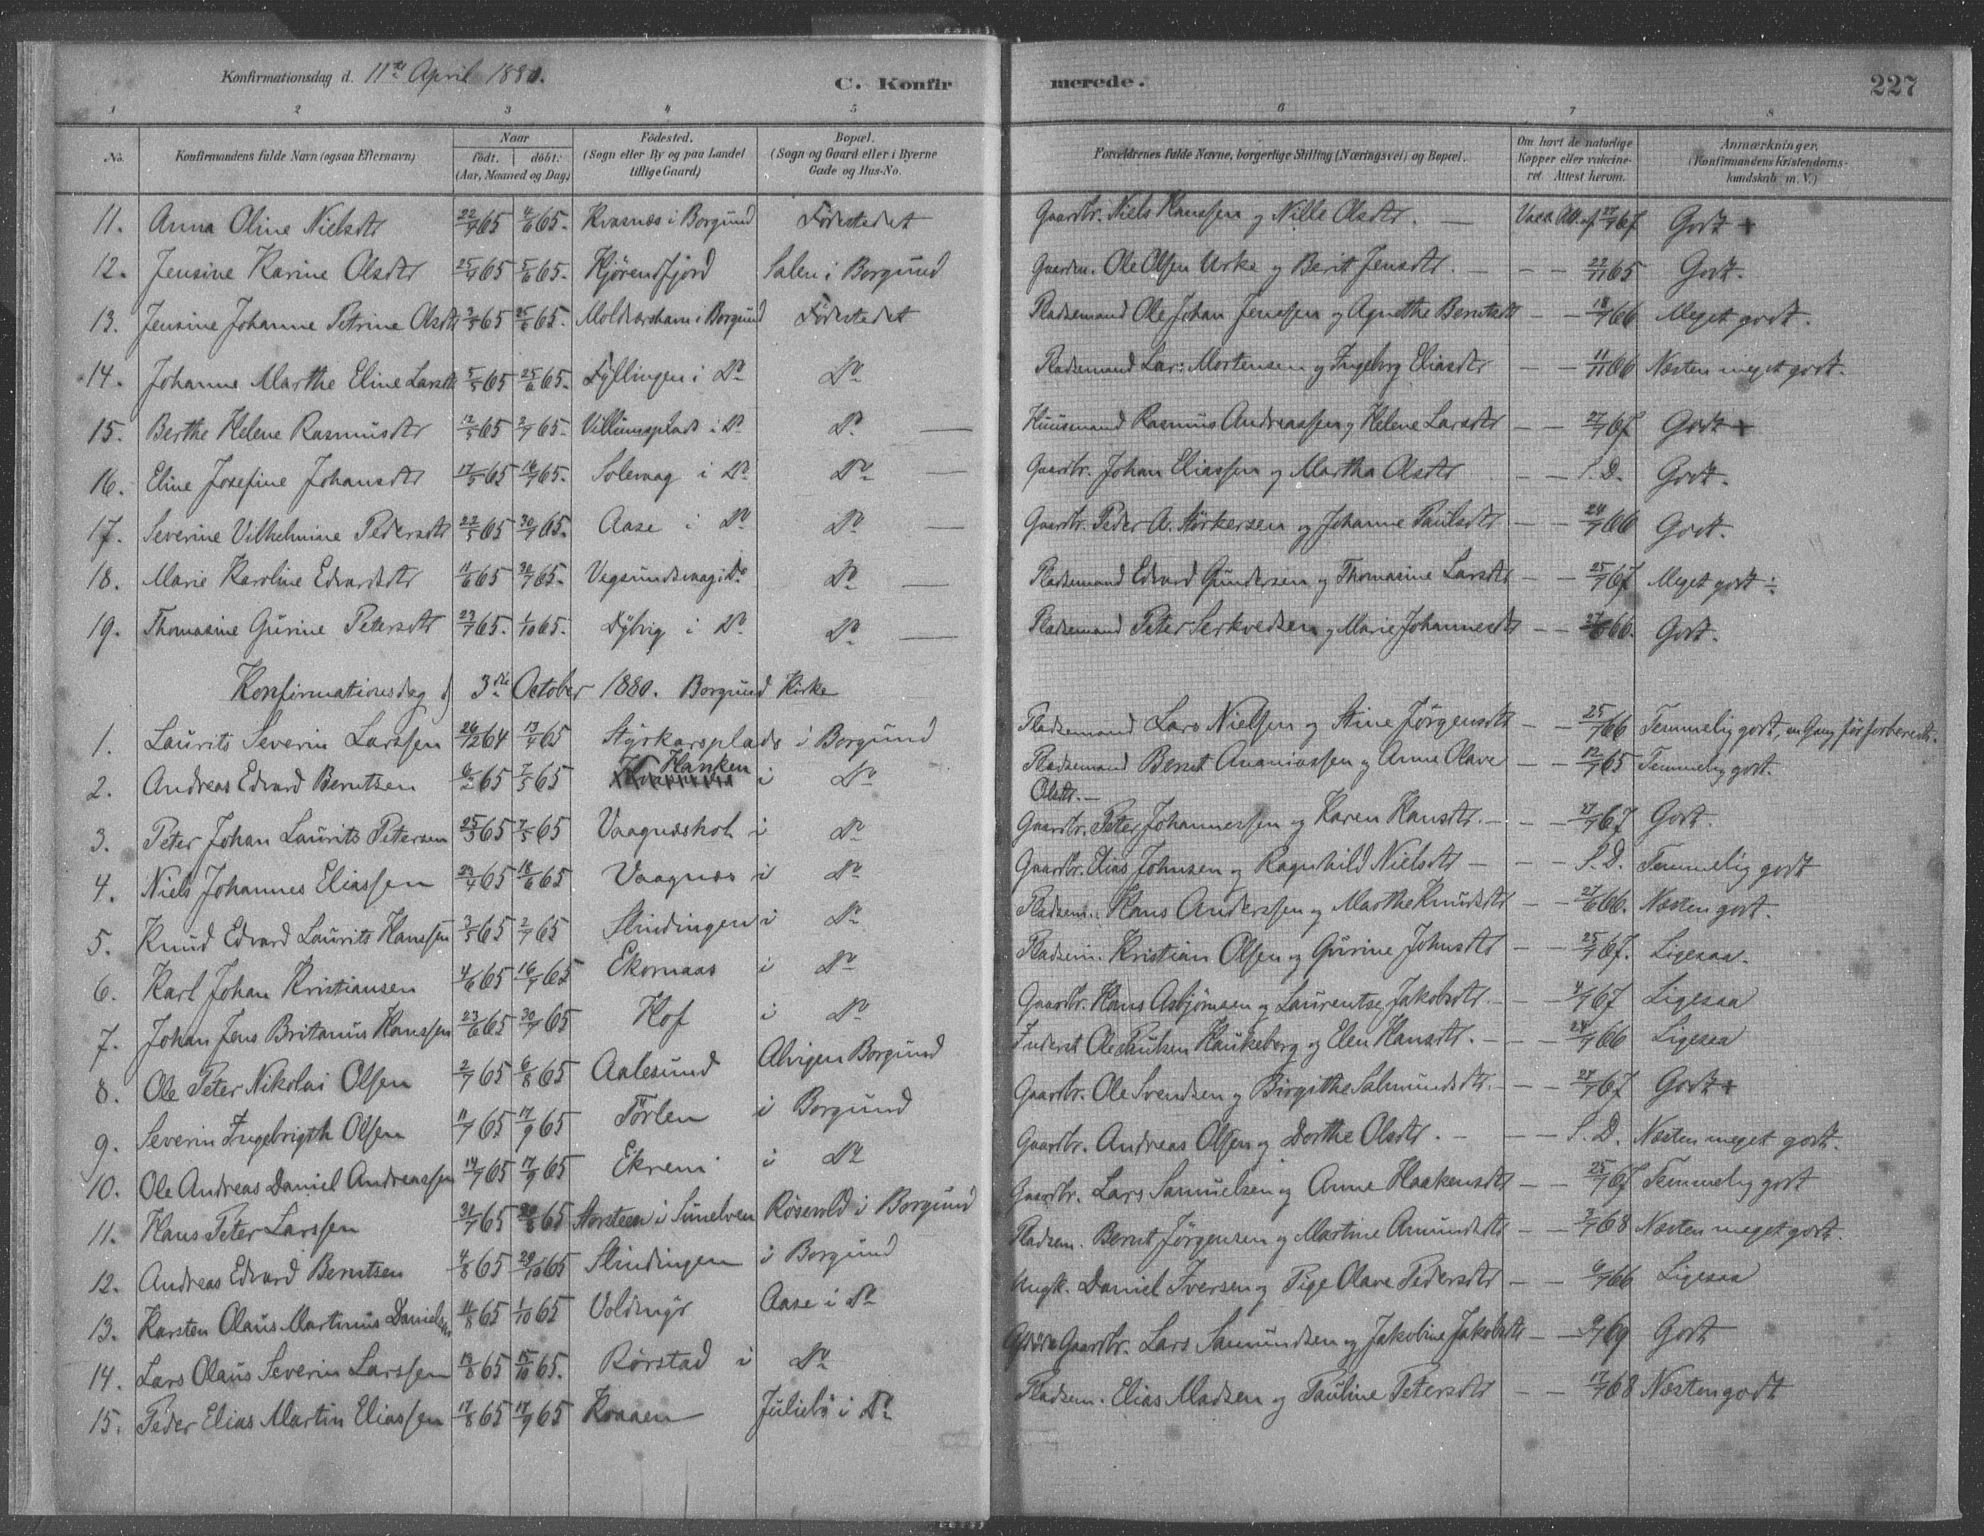 Konfirmationsdag d. 11te April 1880. C. Konfirmerede. 227
1 2 3 4 5 6 7 8
No. Konfirmandens fulde Navn (ogsaa Efternavn) Naar født. døbt. (Aar, Maaned og Dag) Fødested. (Sogn eller By og paa Landet tillige Gaard) Bopæl. (Sogn og Gaard eller i Byerne Gade og Hus-No. Forældrenes fulde Navne, borgerlige Stilling (Næringsvei) og Bopæl. Om havt de naturlige Kopper eller vakcineret. Attest herom. Anmærkninger. (Konfirmandens Kristendomskundskab m. V.)
11. Anna Oline Nielsdtr 22/4 65 4/6 65. Kvasnæs i Borgund Fødestedet Gaardbr. Niels Hanssen og Nille Olsdtr. — Vacc. Att. af 27/7 67 Godt +
12. Jensine Karine Olsdtr 25/4 65 5/6 65. Hjörendfjord Salen i Borgund Gaardm. Ole Olsen Urke og Berit Jensdtr. — — — 22/11 65 Godt.
13. Jensine Johanne Petrine Olsdtr 3/5 65 25/6 65. Moldværsham i Borgund Fødestedet Pladsemand Ole Johan Jenssen og Agnethe Berntsdtr — — 18/7 66 Meget godt.
14. Johanne Marthe Eline Larsdtr 5/5 65 25/6 65. Fyllingen i Do Do Pladsemand Lars Mortensen og Ingeborg Eliasdtr — — 11/11 66 Næsten meget godt.
15. Berthe Helene Rasmusdtr 12/5 65 2/7 65. Villumsplads i Do Do — Huusmand Rasmus Andreassen og Helene Larsdtr — — 27/7 67 Godt +
16. Eline Josefine Johansdtr 17/5 65 16/7 65. Solevaag i Do Do — Gaardbr. Johan Eliassen og Martha Olsdtr — — S. D. Godt.
17. Severine Vilhelmine Pedersdtr 22/5 65 30/7 65. Aase i Do Do — Gaardbr. Peder A. Störkersen og Johanne Paulsdtr — — 24/7 66 Godt.
18. Marie Karoline Edvardsdtr 11/6 65 30/7 65. Vegsundsvaag i Do Do — Pladsemand Edvard Gundersen og Thomasine Larsdtr — — 25/7 67 Meget godt ÷
19. Thomasine Gurine Petersdtr 23/7 65. 1/10 65. Dybvig i Do Do — Pladsemand Peter Serkvedsen og Marie Johannesdtr — — 27/8 66. Godt.
Konfirmationsdag d 3die October 1880. Borgund Kirke
1. Laurits Severin Larssen 26/12 64 17/4 65 Styrkarsplads i Borgund Pladsemand Lars Nielsen og Stine Jörgensdtr — — 25/7 66 Temmelig godt, en Gang før forberedt.
2. Andreas Edvard Berntsen 6/2 65 7/5 65 Flisnes Hanken i Do Pladsemand Bernt Ananiassen og Anne Olave Olsdtr. — — — 12/7 65 Temmelig godt.
3. Peter Johan Laurits Petersen 25/3 65 7/5 65 Vaagnæshol i Do Gaardbr. Peter Johannessen og Karen Hansdtr. — — — 27/7 67 Godt
4. Niels Johannes Eliassen 23/4 65 18/6 65 Vaagnæs i Do Gaardbr. Elias Johnsen og Ragnhild Nielsdtr — — — S. D. Temmelig godt
5. Knud Edvard Laurits Hanssen 3/5 65 2/7 65 Slindingen i Do Pladsem. Hans Anderssen og Marthe Knudsdtr — — 27/6 66. Næsten godt.
6. Karl Johan Kristiansen 4/6 65 16/7 65 Ekornaas i Do Pladsem. Kristian Olsen og Gurine Johnsdtr — — 25/7 67. Ligesaa.
7. Johan Jens Britanus Hanssen 23/6 65 30/7 65 Hof i Do Gaardbr. Hans Asbjörnsen og Laurentse Jakobsdtr. — — 4/7 67 Ligesaa
8. Ole Peter Nikolai Olsen 2/7 65 6/8 65 Aalesund Alvigen Borgund Inderst Ole Paulsen Haukeborg og Elen Hansdtr. — — 24/7 66 Ligesaa
9. Severin Ingebrigth Olsen 11/7 65 17/9 65 Törlen i Borgund Gaardbr. Ole Svendsen og Birgithe Salmundsdtr. — — — 27/7 67 Godt +
10. Ole Andreas Daniel Andreassen 14/7 65 17/9 65 Ekrem i Do Gaardbr. Andreas Olsen og Dorthe Olsdtr. — — — S. D. Næsten meget godt.
11. Hans Peter Larssen 31/7 65 20/8 65 Storsteen i Sunelven Røsevold i Borgund Gaardbr. Lars Samuelsen og Anne Haakensdtr — — 25/7 67 Temmelig godt
12. Andreas Edvard Berntsen 4/8 65 29/10 65 Slindingen i Borgund Pladsem. Bernt Jörgensen og Martine Amundsdtr — — 3/7 68 Næsten meget godt.
13. Karsten Olaus Martinus Danielsen 11/8 65 1/10 65 Voldsnÿr Aase i Do Ungk. Daniel Iversen og Pige Olave Pedersdtr — — 6/7 66 Ligesaa
14. Lars Olaus Severin Larssen 13/8 65 15/10 65. Rörstad i Do Gaardbr. Lars Samundsen og Jakobine Jakobsdtr — — 9/7 69 Godt
15. Peder Elias Martin Eliassen 17/8 65 17/9 65 Kraaen Juliebö i Do Pladsem. Elias Madsen og Pauline Petersdtr — — 17/7 68 Næsten godt